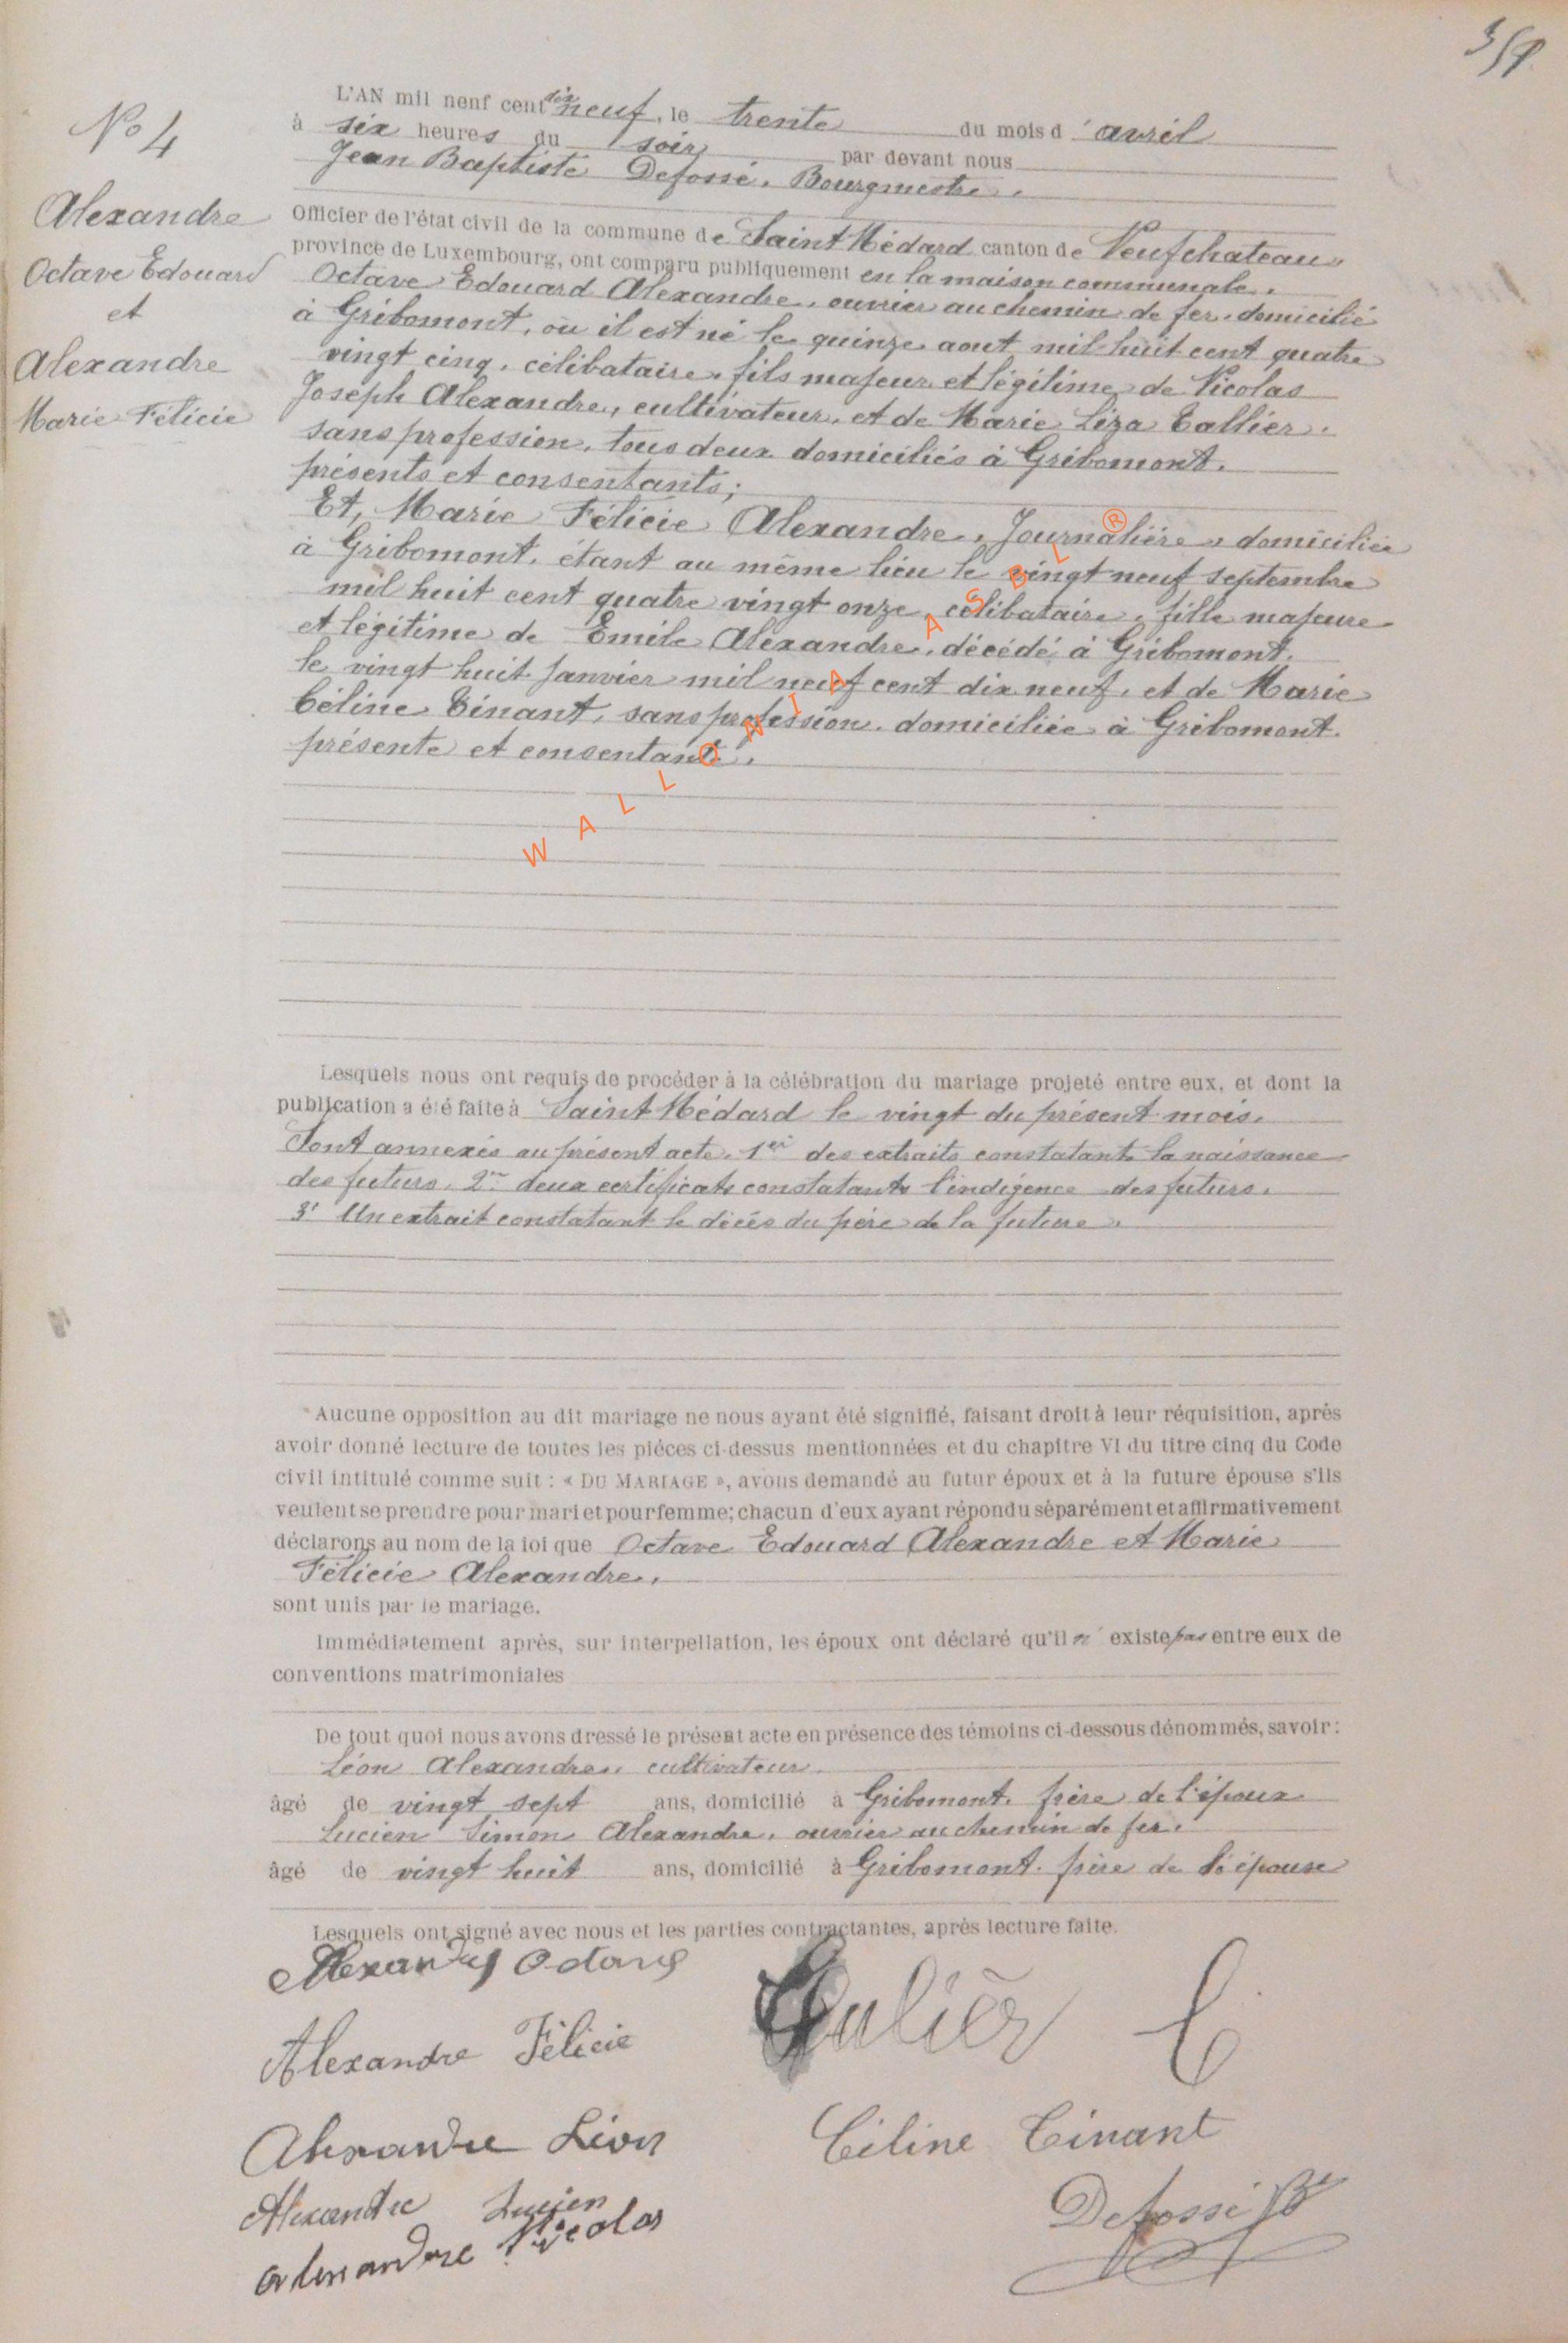 358
N° 4
Alexandre
Octave Edouard
et
Alexandre
Marie Félicie
L'AN mil neuf cent dix neuf, le trente du mois d'avril
à six heures du soir par devant nous
Jean Baptiste Defossé, Bourgmestre,
Officier de l'état civil de la commune de Saint Médard canton de Neufchateau,
province de Luxembourg, ont comparu publiquement en la maison communale.
Octave Edouard Alexandre, ouvrier au chemin de fer, domicilié
à Gribomont, où il est né le quinze aout mil huit cent quatre
vingt cinq, célibataire, fils majeur et légitime de Nicolas
Joseph Alexandre, cultivateur, et de Marie Liza Tallier,
sans profession, tous deux domiciliés à Gribomont,
présents et consentants;
Et, Marie Félicie Alexandre, Journalière, domiciliée
à Gribomont, étant au même lieu le vingt neuf septembre
mil huit cent quatre vingt onze, célibataire, fille majeure
et légitime de Emile Alexandre, décédé à Gribomont,
le vingt huit Janvier mil neuf cent dix neuf, et de Marie
Céline Tinant, sans profession, domiciliée à Gribomont.
présente et consentante.
WALLONIA ASBL ®
Lesquels nous ont requis de procéder à la célébration du mariage projeté entre eux, et dont la
publication a été faite à Saint Médard le vingt du présent mois.
Sont annexés au présent acte. 1er des extraits constatant la naissance
des futurs. 2me deux certificats constatants l'indigence des futurs.
3° Un extrait constatant le décès du père de la future.
Aucune opposition au dit mariage ne nous ayant été signifié, faisant droit à leur réquisition, après
avoir donné lecture de toutes les pièces ci-dessus mentionnées et du chapitre VI du titre cinq du Code
civil intitulé comme suit : « DU MARIAGE », avons demandé au futur époux et à la future épouse s'ils
veulent se prendre pour mari et pour femme; chacun d'eux ayant répondu séparément et affirmativement
déclarons au nom de la loi que Octave Edouard Alexandre et Marie
Félicie Alexandre,
sont unis par le mariage.
Immédiatement après, sur interpellation, les époux ont déclaré qu'il n'existe pas entre eux de
conventions matrimoniales
De tout quoi nous avons dressé le présent acte en présence des témoins ci-dessous dénommés, savoir :
Léon Alexandre, cultivateur.
âgé de vingt sept ans, domicilié à Gribomont, frère de l'époux
Lucien Simon Alexandre, ouvrier au chemin de fer.
âgé de vingt huit ans, domicilié à Gribomont. frère de l'épouse
Lesquels ont signé avec nous et les parties contractantes, après lecture faite.
Alexandre Octave
Tulièr E
Alexandre Félicie
Alexandre Léon
Céline Tinant
Alexandre Lucien
Defossé JB
Alexandre Nicolas